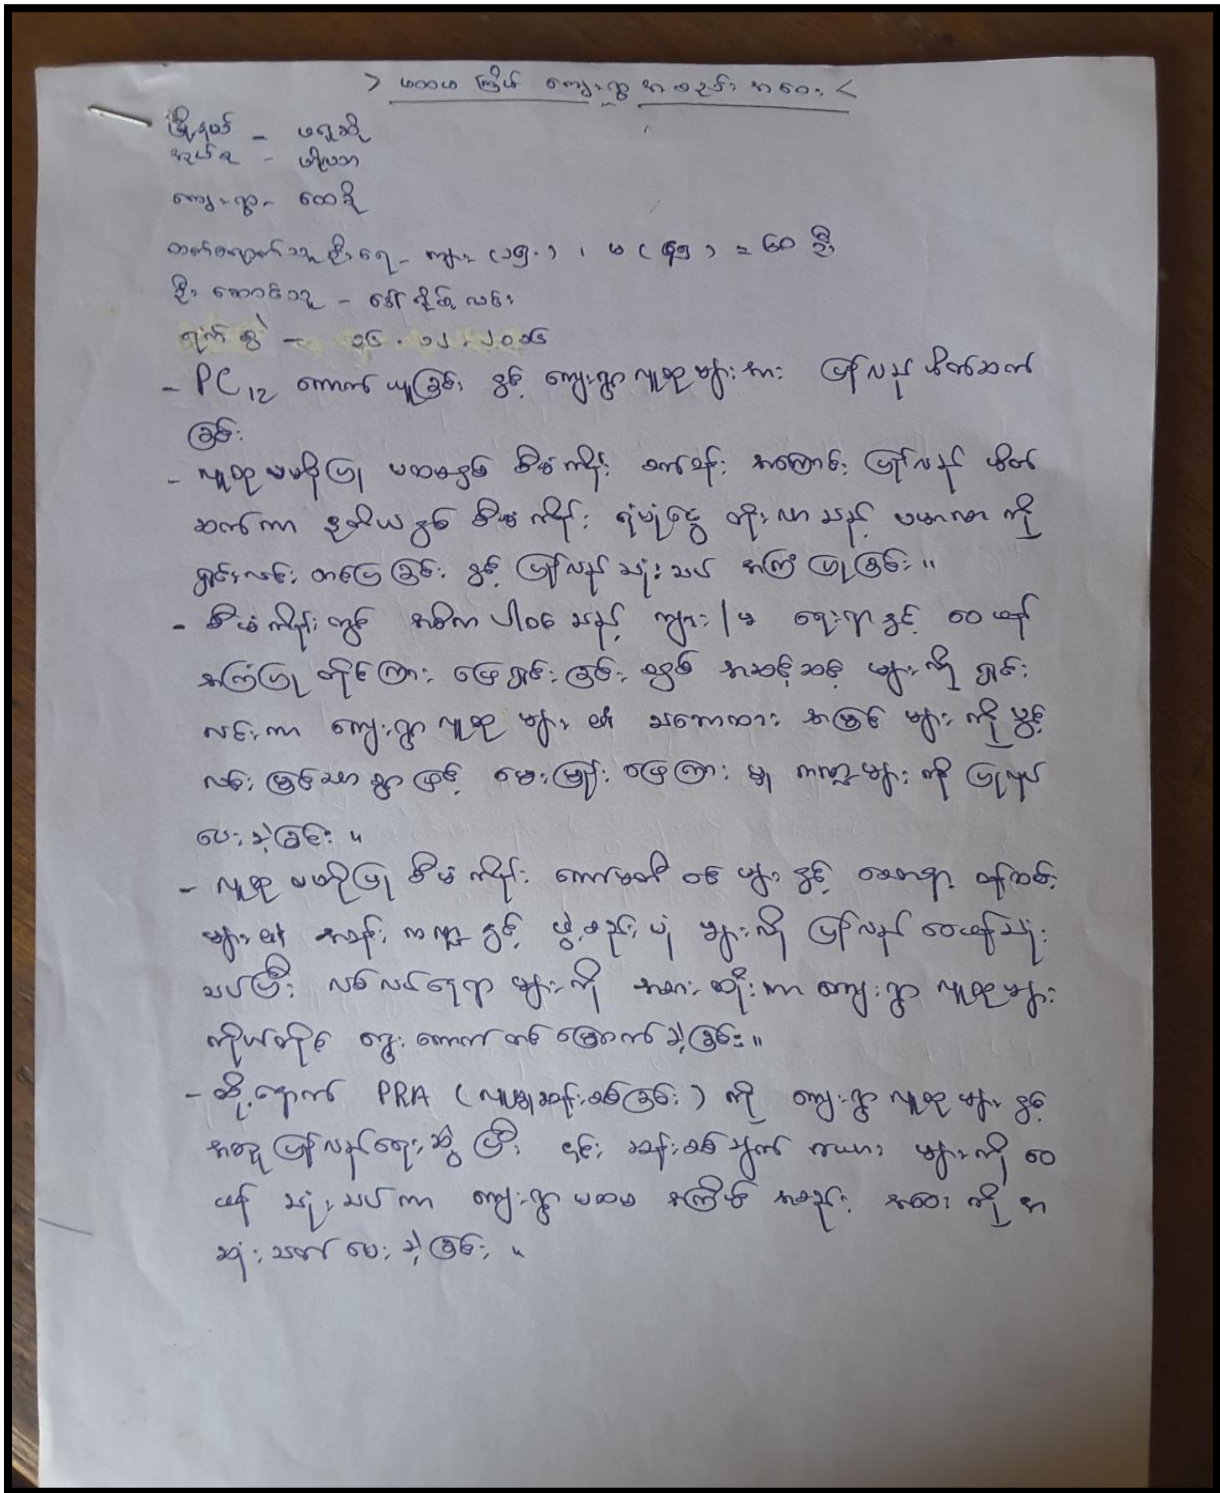 > ပထမ ကြိမ် ကျေးရွာ အစည်း အဝေး <
မြို့နယ် - ဖရူဆို
အုပ်စု -
ကျေးရွာ -
တက်ရောက်သူဦးရေ - ကျား ( ၁၅ ) ၊ မ ( ၄၅ ) = ၆၀ ဦး
ဦးဆောင်သူ - ဒေါ် လင်း
ရက်စွဲ -
- PC12 ကောက်ယူခြင်း နှင့် ကျေးရွာလူထုများအား ပြန်လည် မိတ်ဆက်
ခြင်း
- လူထုပဟိုပြု ပထမနှစ် စီမံကိန်း စက်ဝန်း အကြောင်း ပြန်လည် မိတ်
ဆက်ကာ ဒုတိယနှစ် စီမံကိန်း ရံပုံငွေ တိုးလာသည့် ပမာဏ ကို
ရှင်းလင်း တင်ပြခြင်း နှင့် ပြန်လည်သုံးသပ် အကြံပြုခြင်း။
- စီမံကိန်းတွင် အဓိက ပါဝင်သည့် ကျား/မ ရေးရာနှင့် ဝေဖန်
အကြံပြု တိုင်ကြား ဖြေရှင်းခြင်း အဆင့်ဆင့် များကို ရှင်း
လင်းကာ ကျေးရွာလူထု များ ၏ သဘောထား အမြင် များ ကို ပွင့်
လင်းမြင်သာစွာဖြင့် မေးမြန်း ဖြေကြား မှု ကဏ္ဍများ ကို ပြုလုပ်
ပေးခဲ့ခြင်း။
- လူထုပဟိုပြု စီမံကိန်း ကော်မတီ ဝင် များ နှင့် စေတနာ့ ဝန်ထမ်း
များ ၏ အခန်း ကဏ္ဍ နှင့် ဖွဲ့စည်းပုံ များကို ပြန်လည် ဝေဖန်သုံး
သပ်ပြီး လစ်လပ်နေရာ များကို အစားထိုးကာ ကျေးရွာ လူထုများ
ကိုယ်တိုင် ရွေးကောက်တင်မြှောက်ခဲ့ခြင်း။
- ထို့နောက် PRA ( လူမှုဆန်းစစ်ခြင်း ) ကို ကျေးရွာလူထု များ နှင့်
အတူ ပြန်လည်ရေးဆွဲ ပြီး ၎င်း ဆန်းစစ်ချက် ဇယား များကို ဝေ
ဖန် သုံးသပ်ကာ ကျေးရွာ ပထမ အကြိမ် အစည်း အဝေး ကို အ
ဆုံးသတ် ပေးခဲ့ခြင်း။